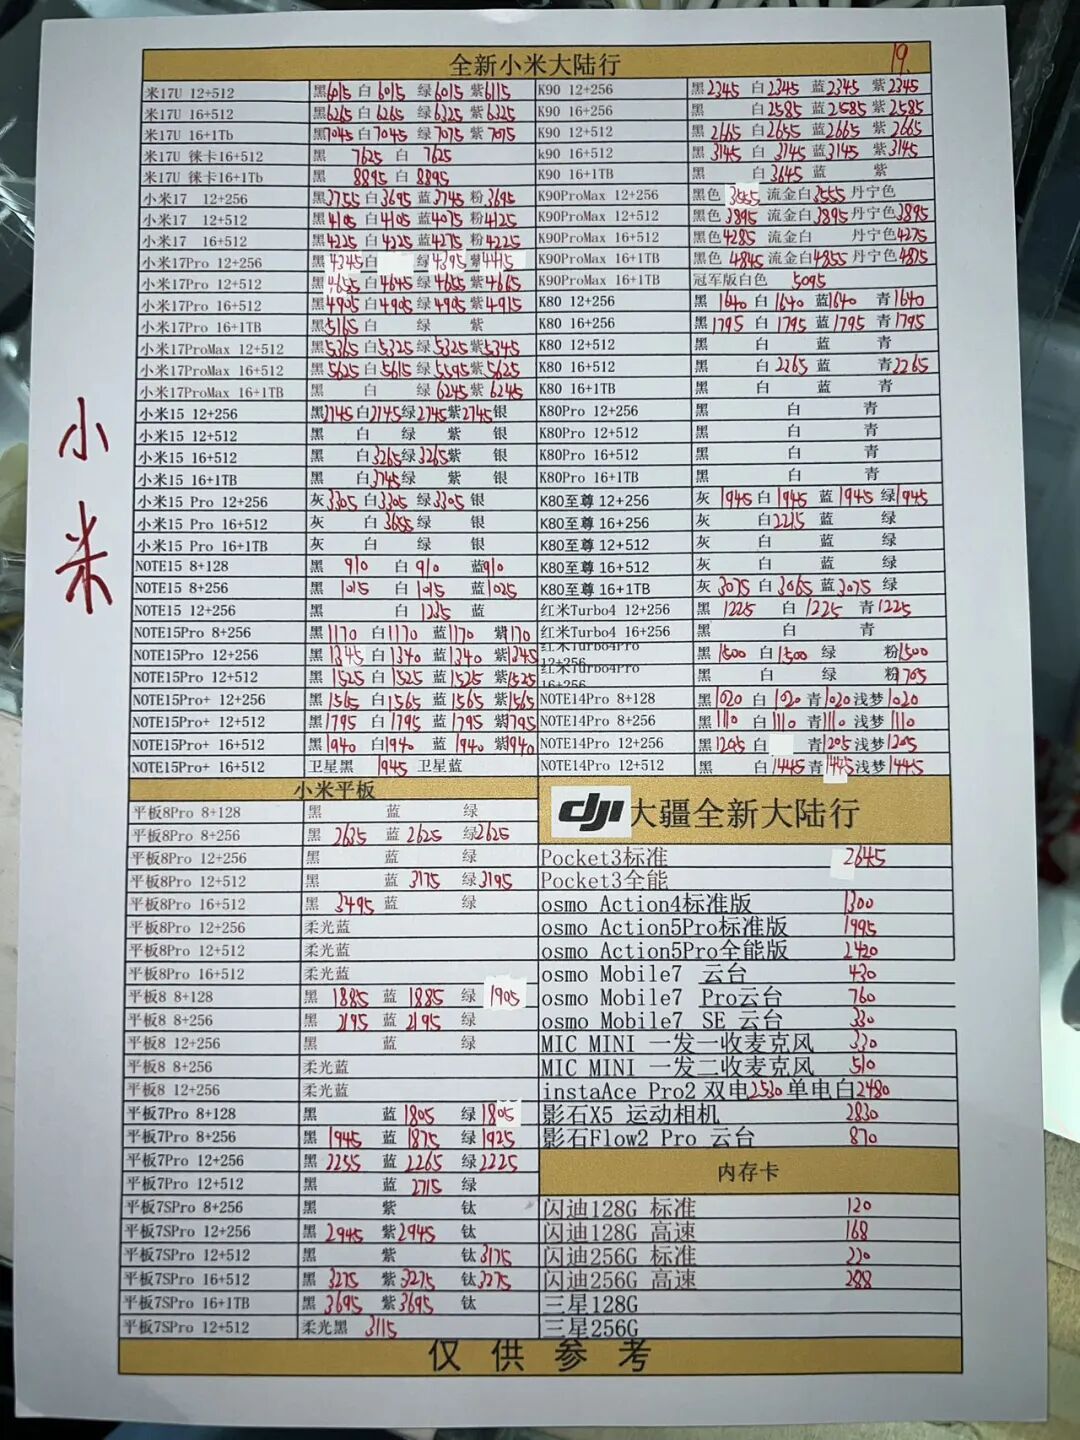 19.
全新小米大陆行
小米
米17U 12+512 黑6015 白6015 绿6015 紫6115
米17U 16+512 黑6265 白6265 绿6325 紫6325
米17U 16+1Tb 黑7045 白7045 绿7075 紫7075
米17U 徕卡16+512 黑7625 白7625
米17U 徕卡16+1Tb 黑8895 白8895
小米17 12+256 黑3755 白3695 蓝3745 粉3695
小米17 12+512 黑4105 白4105 蓝4075 粉4125
小米17 16+512 黑4225 白4225 蓝4275 粉4225
小米17Pro 12+256 黑4345 白 绿4395 紫4415
小米17Pro 12+512 黑4655 白4645 绿4655 紫4665
小米17Pro 16+512 黑4905 白4905 绿4905 紫4915
小米17Pro 16+1TB 黑5165 白 绿 紫
小米17ProMax 12+512 黑5365 白5325 绿5325 紫5345
小米17ProMax 16+512 黑5625 白5615 绿5595 紫5625
小米17ProMax 16+1TB 黑 白 绿6245 紫6245
小米15 12+256 黑2745 白2745 绿2745 紫2745 银
小米15 12+512 黑 白 绿 紫 银
小米15 16+512 黑 白3265 绿3265 紫 银
小米15 16+1TB 黑 白3745 绿 紫 银
小米15 Pro 12+256 灰3305 白3305 绿3305 银
小米15 Pro 16+512 灰 白3655 绿 银
小米15 Pro 16+1TB 灰 白 绿 银
NOTE15 8+128 黑910 白910 蓝910
NOTE15 8+256 黑1015 白1015 蓝1025
NOTE15 12+256 黑 白1235 蓝
NOTE15Pro 8+256 黑1170 白1170 蓝1170 紫1170
NOTE15Pro 12+256 黑1345 白1340 蓝1340 紫1345
NOTE15Pro 12+512 黑1525 白1525 蓝1525 紫1525
NOTE15Pro+ 12+256 黑1565 白1565 蓝1565 紫1565
NOTE15Pro+ 12+512 黑1795 白1795 蓝1795 紫1795
NOTE15Pro+ 16+512 黑1940 白1940 蓝1940 紫1940
NOTE15Pro+ 16+512 卫星黑 1945 卫星蓝
K90 12+256 黑2345 白2345 蓝2345 紫2345
K90 16+256 黑 白2585 蓝2585 紫2585
K90 12+512 黑2665 白2655 蓝2665 紫2665
k90 16+512 黑3145 白3145 蓝3145 紫3145
K90 16+1TB 黑 白3645 蓝 紫
K90ProMax 12+256 黑色 流金白3555 丹宁色
K90ProMax 12+512 黑色3895 流金白3895 丹宁色3895
K90ProMax 16+512 黑色4285 流金白 丹宁色4275
K90ProMax 16+1TB 黑色4845 流金白4855 丹宁色4875
K90ProMax 16+1TB 冠军版白色 5095
K80 12+256 黑1640 白1640 蓝1640 青1640
K80 16+256 黑1795 白1795 蓝1795 青1795
K80 12+512 黑 白 蓝 青
K80 16+512 黑 白2265 蓝 青2265
K80 16+1TB 黑 白 蓝 青
K80Pro 12+256 黑 白 青
K80Pro 12+512 黑 白 青
K80Pro 16+512 黑 白 青
K80Pro 16+1TB 黑 白 青
K80至尊 12+256 灰1945 白1945 蓝1945 绿1945
K80至尊 16+256 灰 白2215 蓝 绿
K80至尊 12+512 灰 白 蓝 绿
K80至尊 16+512 灰 白 蓝 绿
K80至尊 16+1TB 灰3075 白3065 蓝3075 绿
红米Turbo4 12+256 黑1225 白1225 青1225
红米Turbo4 16+256 黑 白 青
红米Turbo4Pro 12+256 黑1500 白1500 绿 粉1500
红米Turbo4Pro 16+256 黑 白 绿 粉1705
NOTE14Pro 8+128 黑1020 白1020 青1020 浅梦1020
NOTE14Pro 8+256 黑1110 白1110 青1110 浅梦1110
NOTE14Pro 12+256 黑1205 白 青1205 浅梦1205
NOTE14Pro 12+512 黑 白1445 青1445 浅梦1445
小米平板
平板8Pro 8+128 黑 蓝 绿
平板8Pro 8+256 黑2635 蓝2625 绿2625
平板8Pro 12+256 黑 蓝 绿
平板8Pro 12+512 黑 蓝3175 绿3195
平板8Pro 16+512 黑3495 蓝 绿
平板8Pro 12+256 柔光蓝
平板8Pro 12+512 柔光蓝
平板8Pro 16+512 柔光蓝
平板8 8+128 黑1885 蓝1885 绿1905
平板8 8+256 黑2195 蓝2195 绿
平板8 12+256 黑 蓝 绿
平板8 8+256 柔光蓝
平板8 12+256 柔光蓝
平板7Pro 8+128 黑 蓝1805 绿1805
平板7Pro 8+256 黑1945 蓝1875 绿1925
平板7Pro 12+256 黑2255 蓝2265 绿2225
平板7Pro 12+512 黑 蓝2715 绿
平板7SPro 8+256 黑 紫 钛
平板7SPro 12+256 黑2945 紫2945 钛
平板7SPro 12+512 黑 紫 钛3175
平板7SPro 16+512 黑3275 紫3275 钛3275
平板7SPro 16+1TB 黑3695 紫3695 钛
平板7SPro 12+512 柔光黑 3115
dji 大疆全新大陆行
Pocket3标准 2645
Pocket3全能
osmo Action4标准版 1300
osmo Action5Pro标准版 1995
osmo Action5Pro全能版 2420
osmo Mobile7 云台 430
osmo Mobile7 Pro云台 760
osmo Mobile7 SE 云台 330
MIC MINI 一发一收麦克风 330
MIC MINI 一发二收麦克风 510
instaAce Pro2 双电2530 单电白2480
影石X5 运动相机 2830
影石Flow2 Pro 云台 870
内存卡
闪迪128G 标准 120
闪迪128G 高速 168
闪迪256G 标准 220
闪迪256G 高速 288
三星128G
三星256G
仅供参考